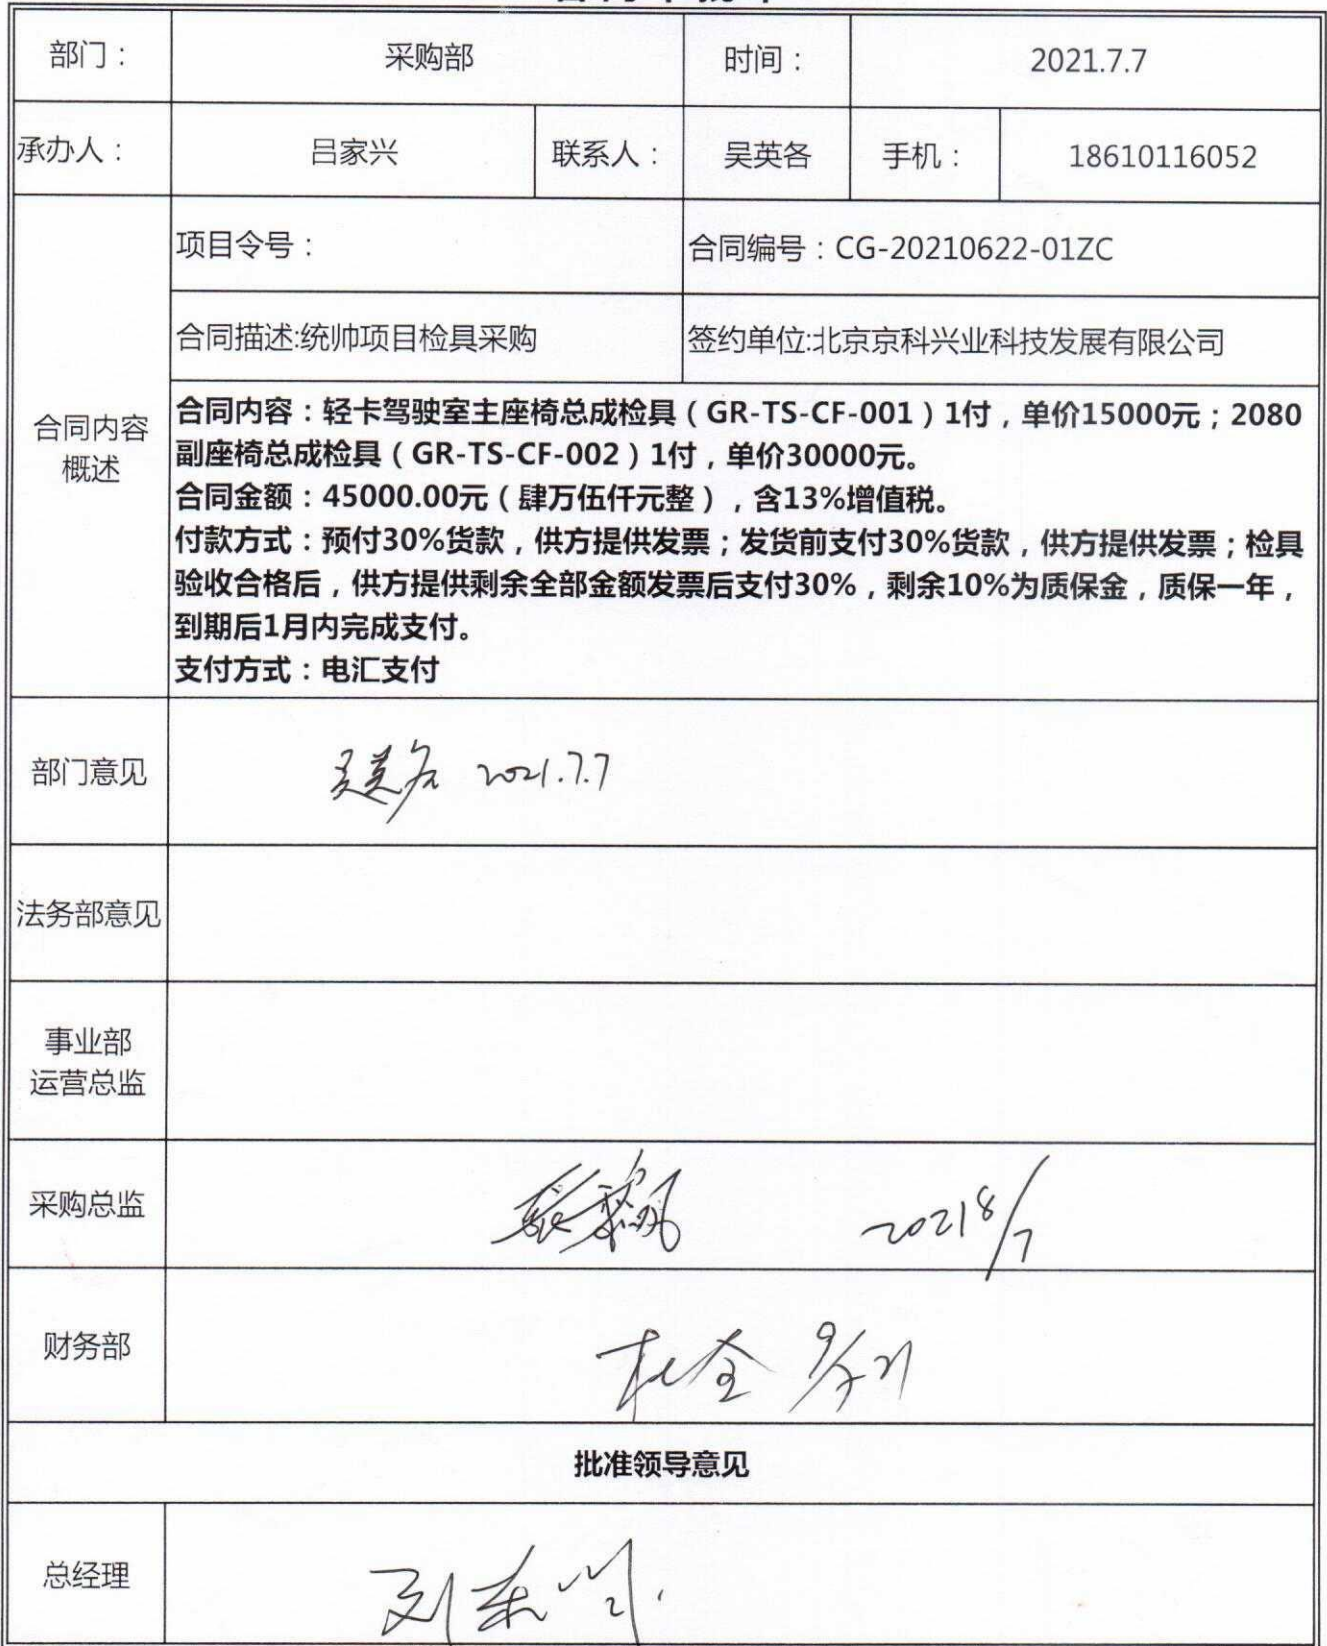 部门： 采购部 时间： 2021.7.7
承办人： 吕家兴 联系人： 吴英各 手机： 18610116052
项目令号： 合同编号：CG-20210622-01ZC
合同描述:统帅项目检具采购 签约单位:北京京科兴业科技发展有限公司
合同内容
概述
合同内容：轻卡驾驶室主座椅总成检具（GR-TS-CF-001）1付，单价15000元；2080
副座椅总成检具（GR-TS-CF-002）1付，单价30000元。
合同金额：45000.00元（肆万伍仟元整），含13%增值税。
付款方式：预付30%货款，供方提供发票；发货前支付30%货款，供方提供发票；检具
验收合格后，供方提供剩余全部金额发票后支付30%，剩余10%为质保金，质保一年，
到期后1月内完成支付。
支付方式：电汇支付
部门意见 吴英各 2021.7.7
法务部意见
事业部
运营总监
采购总监 2021 8/7
财务部 杜全
批准领导意见
总经理